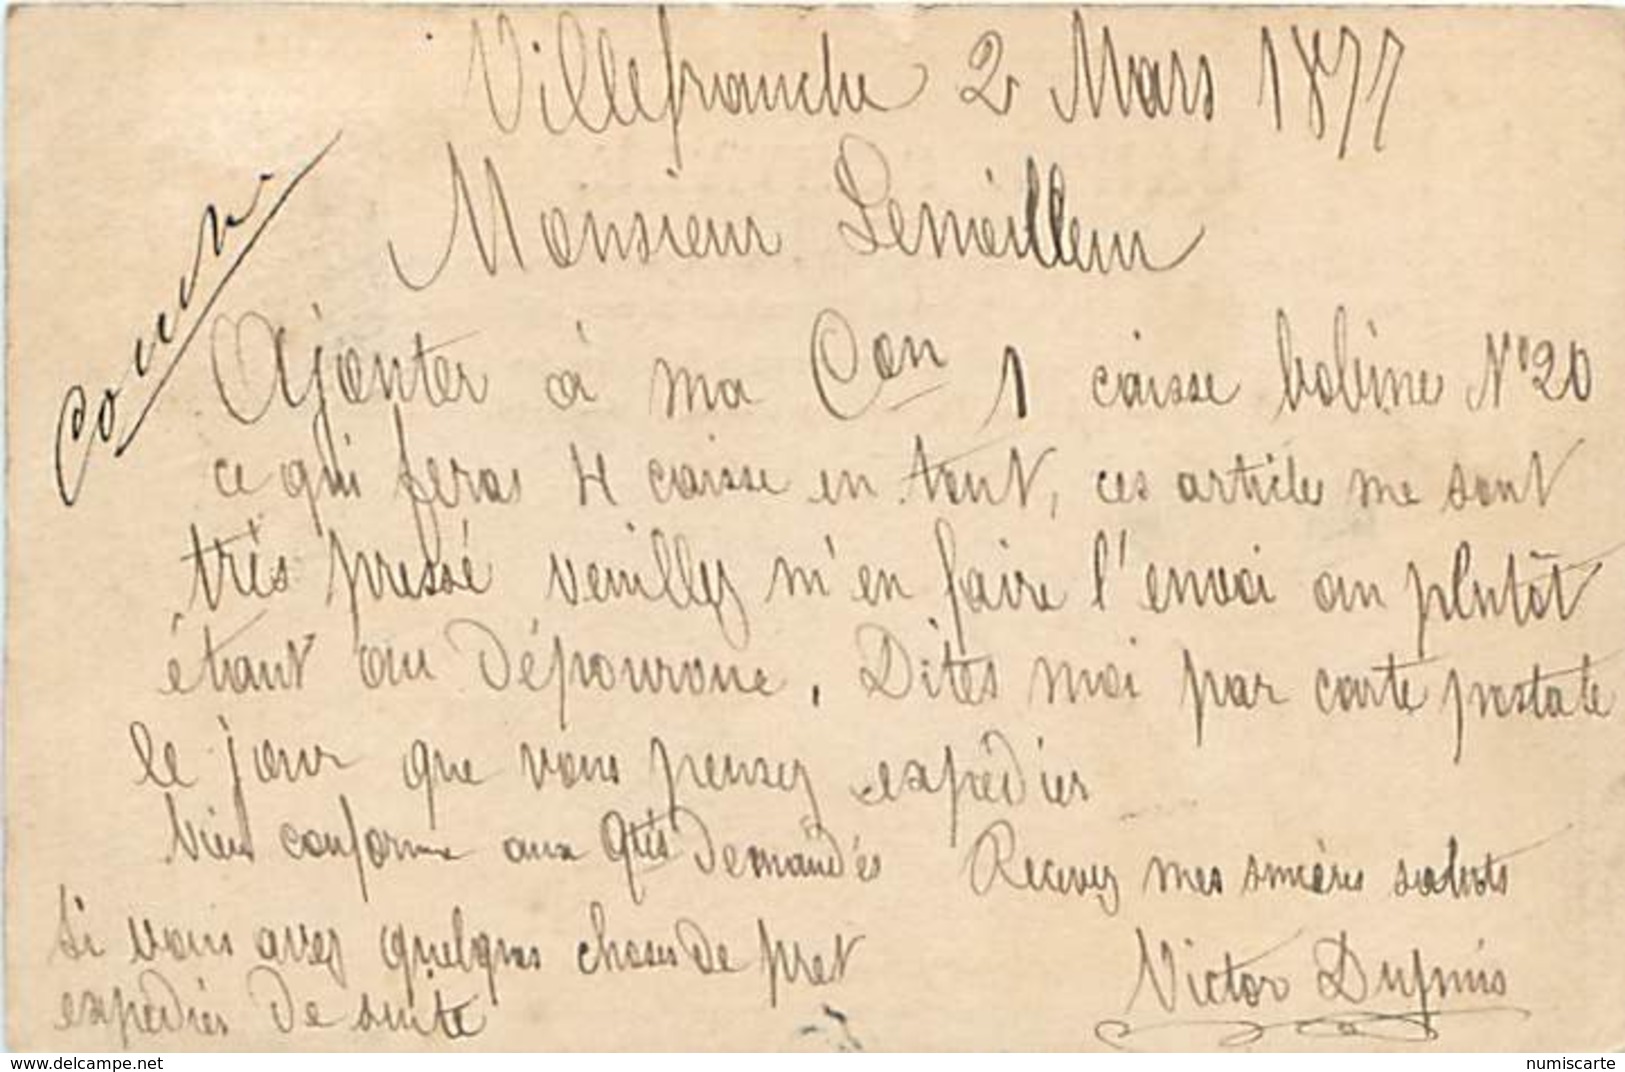 Villefranche 2 Mars 1877
Monsieur Lemeilleur
Ajouter à ma Con 1 caisse bobine N° 20
ce qui feras 4 caisse en tout, ces article me sont
très pressé veuillez m'en faire l'envoi au plutôt
étant au dépourvue. Dites moi par carte postale
le jour que vous pensez expédier
bien conforme aux Qtés demandés Recevez mes sincères saluts
Si vous avez quelques choses de pret
expédiés de suite
Victor Dupuis
delcampe.net
numiscarte